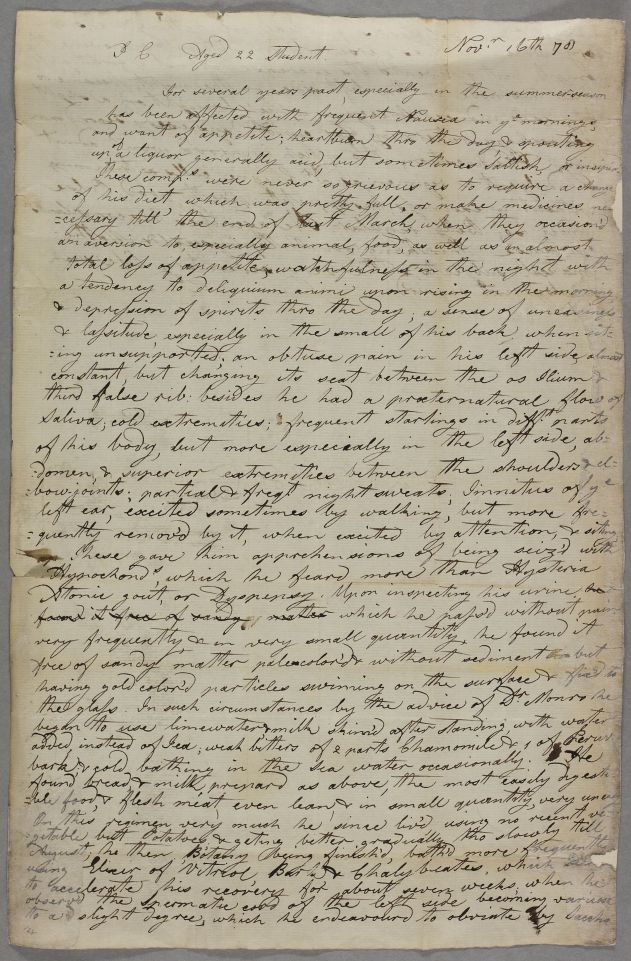 J C Aged 22 Student. Novr. 16th 78
For several years past, especially in the summer season
has been affected with frequent Nausea in ye mornings,
and want of appetite; heartburn thro the day & spouting
up of a liquor generally acid, but sometimes saltish, or insipid
These compts. were never so grievous as to require a change
of his diet which was pretty full, or make medicines ne-
=cessary till the end of last March, when they occasion'd
an aversion to, especially animal, food, as well as an almost
total loss of appetite, watchfulness in the night with
a tendency to deliquium animi upon rising in the morning
& depression of spirits thro the day; a sense of uneasiness
& lassitude, especially in the small of his back, when sit-
=ing unsupported; an obtuse pain in his left side, almost
constant, but changing its seat between the os Ilium &
third false rib: besides he had a præternatural flow of
Saliva; cold extremities; frequent startings in difft. parts
of his body, but more especially in the left side, ab-
=domen, & superior extremities between the shoulder & el-
=bow joints; partial & freqt. night sweats; Tinnitus of ye
left ear, excited sometimes by walking, but more fre-
=quently remov'd by it, when excited by attention, & sitting
These gave him apprehensions of being seiz'd with
Hypochonds., which he fear'd more than Hysteria
Atonic gout, or Dyspepsy. Upon inspecting his urine, he
found it free of sandy matter which he pass'd without pain
very frequently & in very small quantity, he found it
free of sandy matter pale color'd & without sediment but
having gold color'd particles swimming on the surface & fix'd to
the glass. In such circumstances by the advice of Dr. Monro he
began to use limewater & milk skim'd after standing with water
added, instead of Tea; weak bitters of 2 parts Chamomile & 1 of Peruv.
bark & cold bathing in the sea water occasionally. He
found bread & milk, prepar'd as above, the most easily digesti-
=ble food, & flesh meat, even lean, & in small quantity, very
On this regimen very much he since liv'd using no recent ve-
=getable but Potatoes, & geting better gradually, tho slowly till
August, he then Botany being finish'd, bath'd more frequently
using Elixir of Vitriol, Bark & Chalybeates, which
to accelerate his recovery for about seven weeks, when he
observ'd the spermatic cord of the left side becoming varicose
to a slight degree, which he endeavour'd to obviate by